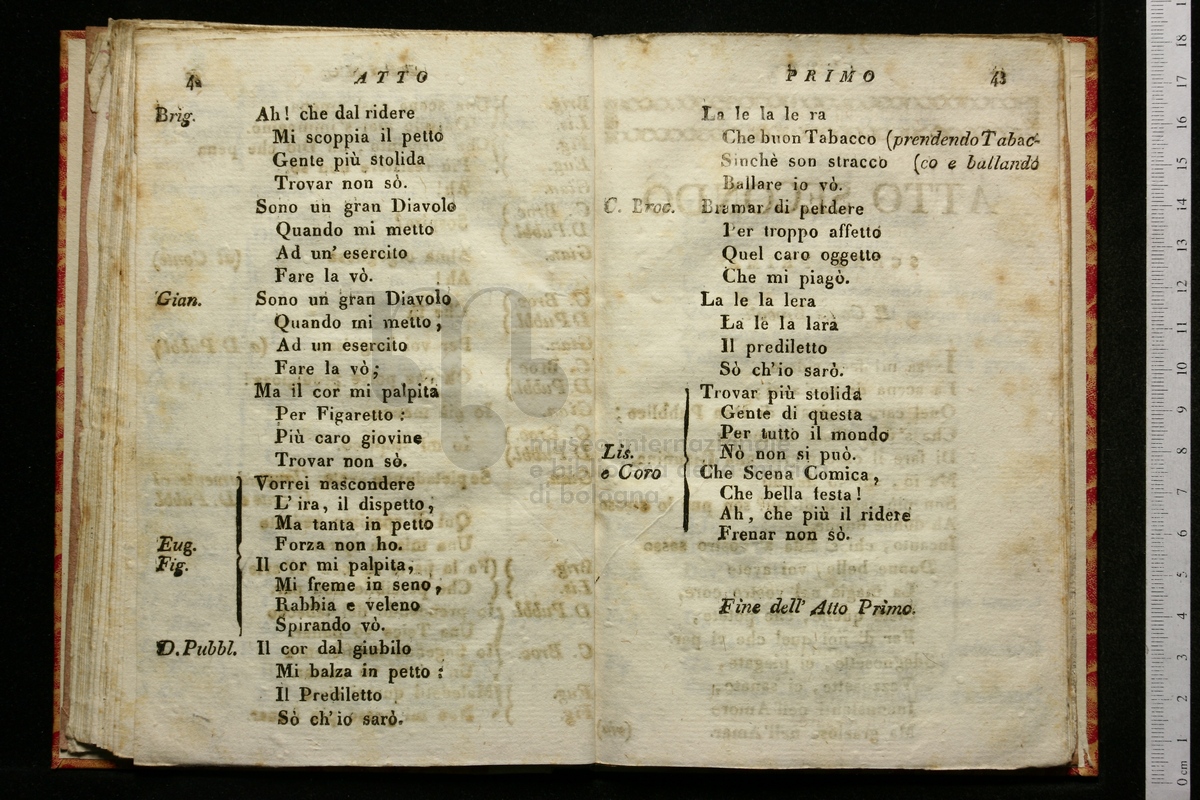 4
ATTO
Brig. Ah! che dal ridere
Mi scoppia il petto
Gente più stolida
Trovar non sò.
Sono un gran Diavolo
Quando mi metto
Ad un' esercito
Fare la vò.
Gian. Sono un gran Diavolo
Quando mi metto,
Ad un esercito
Fare la vò;
Ma il cor mi palpita
Per Figaretto:
Più caro giovine
Trovar non sò.
Vorrei nascondere
L'ira, il dispetto,
Ma tanta in petto
Eug. Forza non ho.
Fig. Il cor mi palpita,
Mi freme in seno,
Rabbia e veleno
Spirando vò.
D. Pubbl. Il cor dal giubilo
Mi balza in petto:
Il Prediletto
Sò ch'io sarò.
PRIMO
43
La le la le ra
Che buon Tabacco (prendendo Tabac-
Sinchè son stracco (co e ballando
Ballare io vò.
C. Broc. Bramar di perdere
Per troppo affetto
Quel caro oggetto
Che mi piagò.
La le la lera
La le la larà
Il prediletto
Sò ch'io sarò.
Trovar più stolida
Gente di questa
Per tutto il mondo
Lis. Nò non si può.
e Coro Che Scena Comica,
Che bella testa!
Ah, che più il ridere
Frenar non sò.
Fine dell' Atto Primo.
museo internazionale
e biblioteca della
di bologna